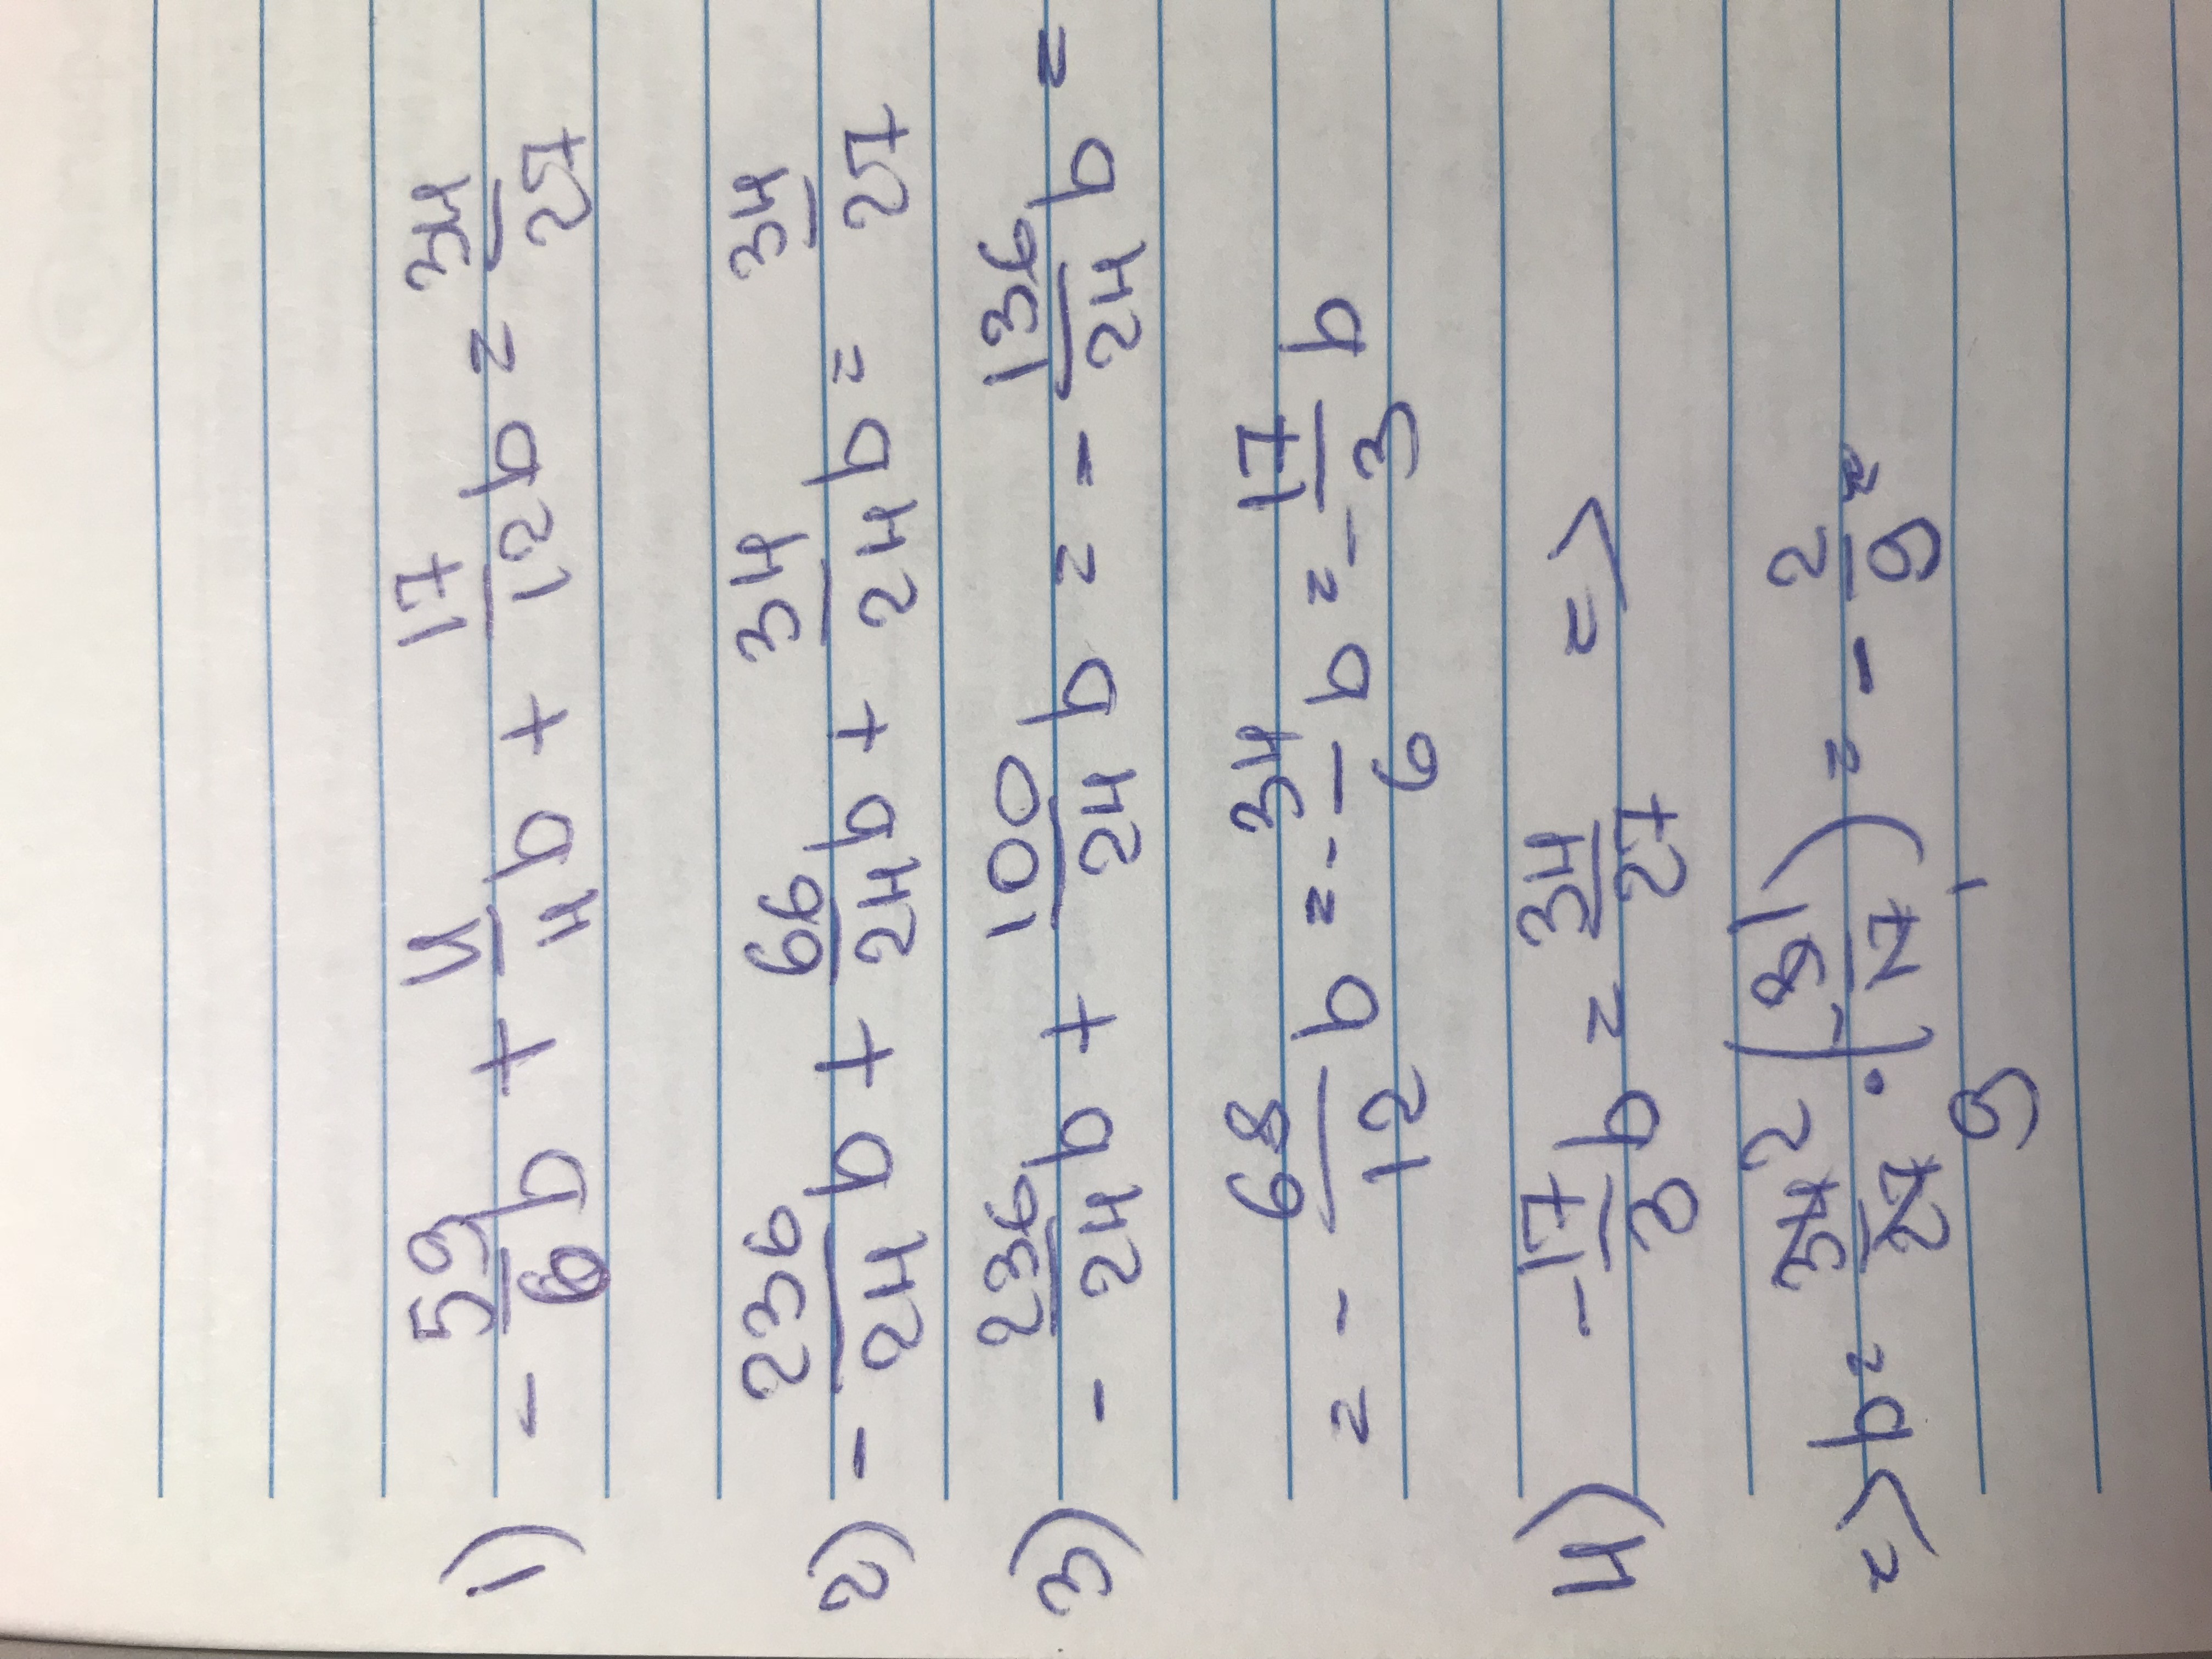 1) - 59/6 b + 11/4 b + 17/12 b = 34/27
2) - 236/24 b + 66/24 b + 34/24 b = 34/27
3) - 236/24 b + 100/24 b = - 136/24 b =
= - 68/12 b = - 34/6 b = - 17/3 b
4) - 17/3 b = 34/27 =>
=> b = 34 2/27 9 · (- 3 1/17 1) = - 2/9